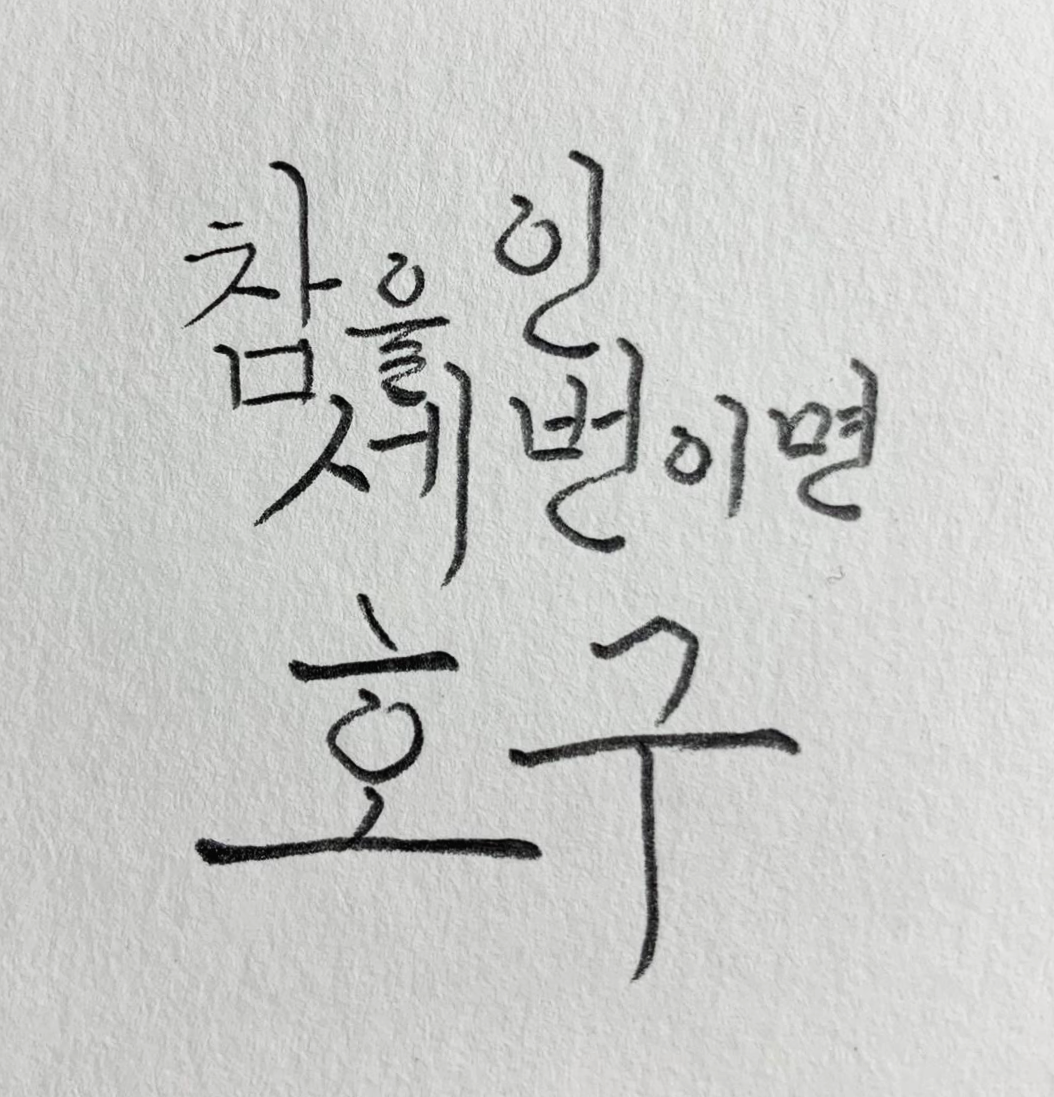 참을 인
세번이면
호구